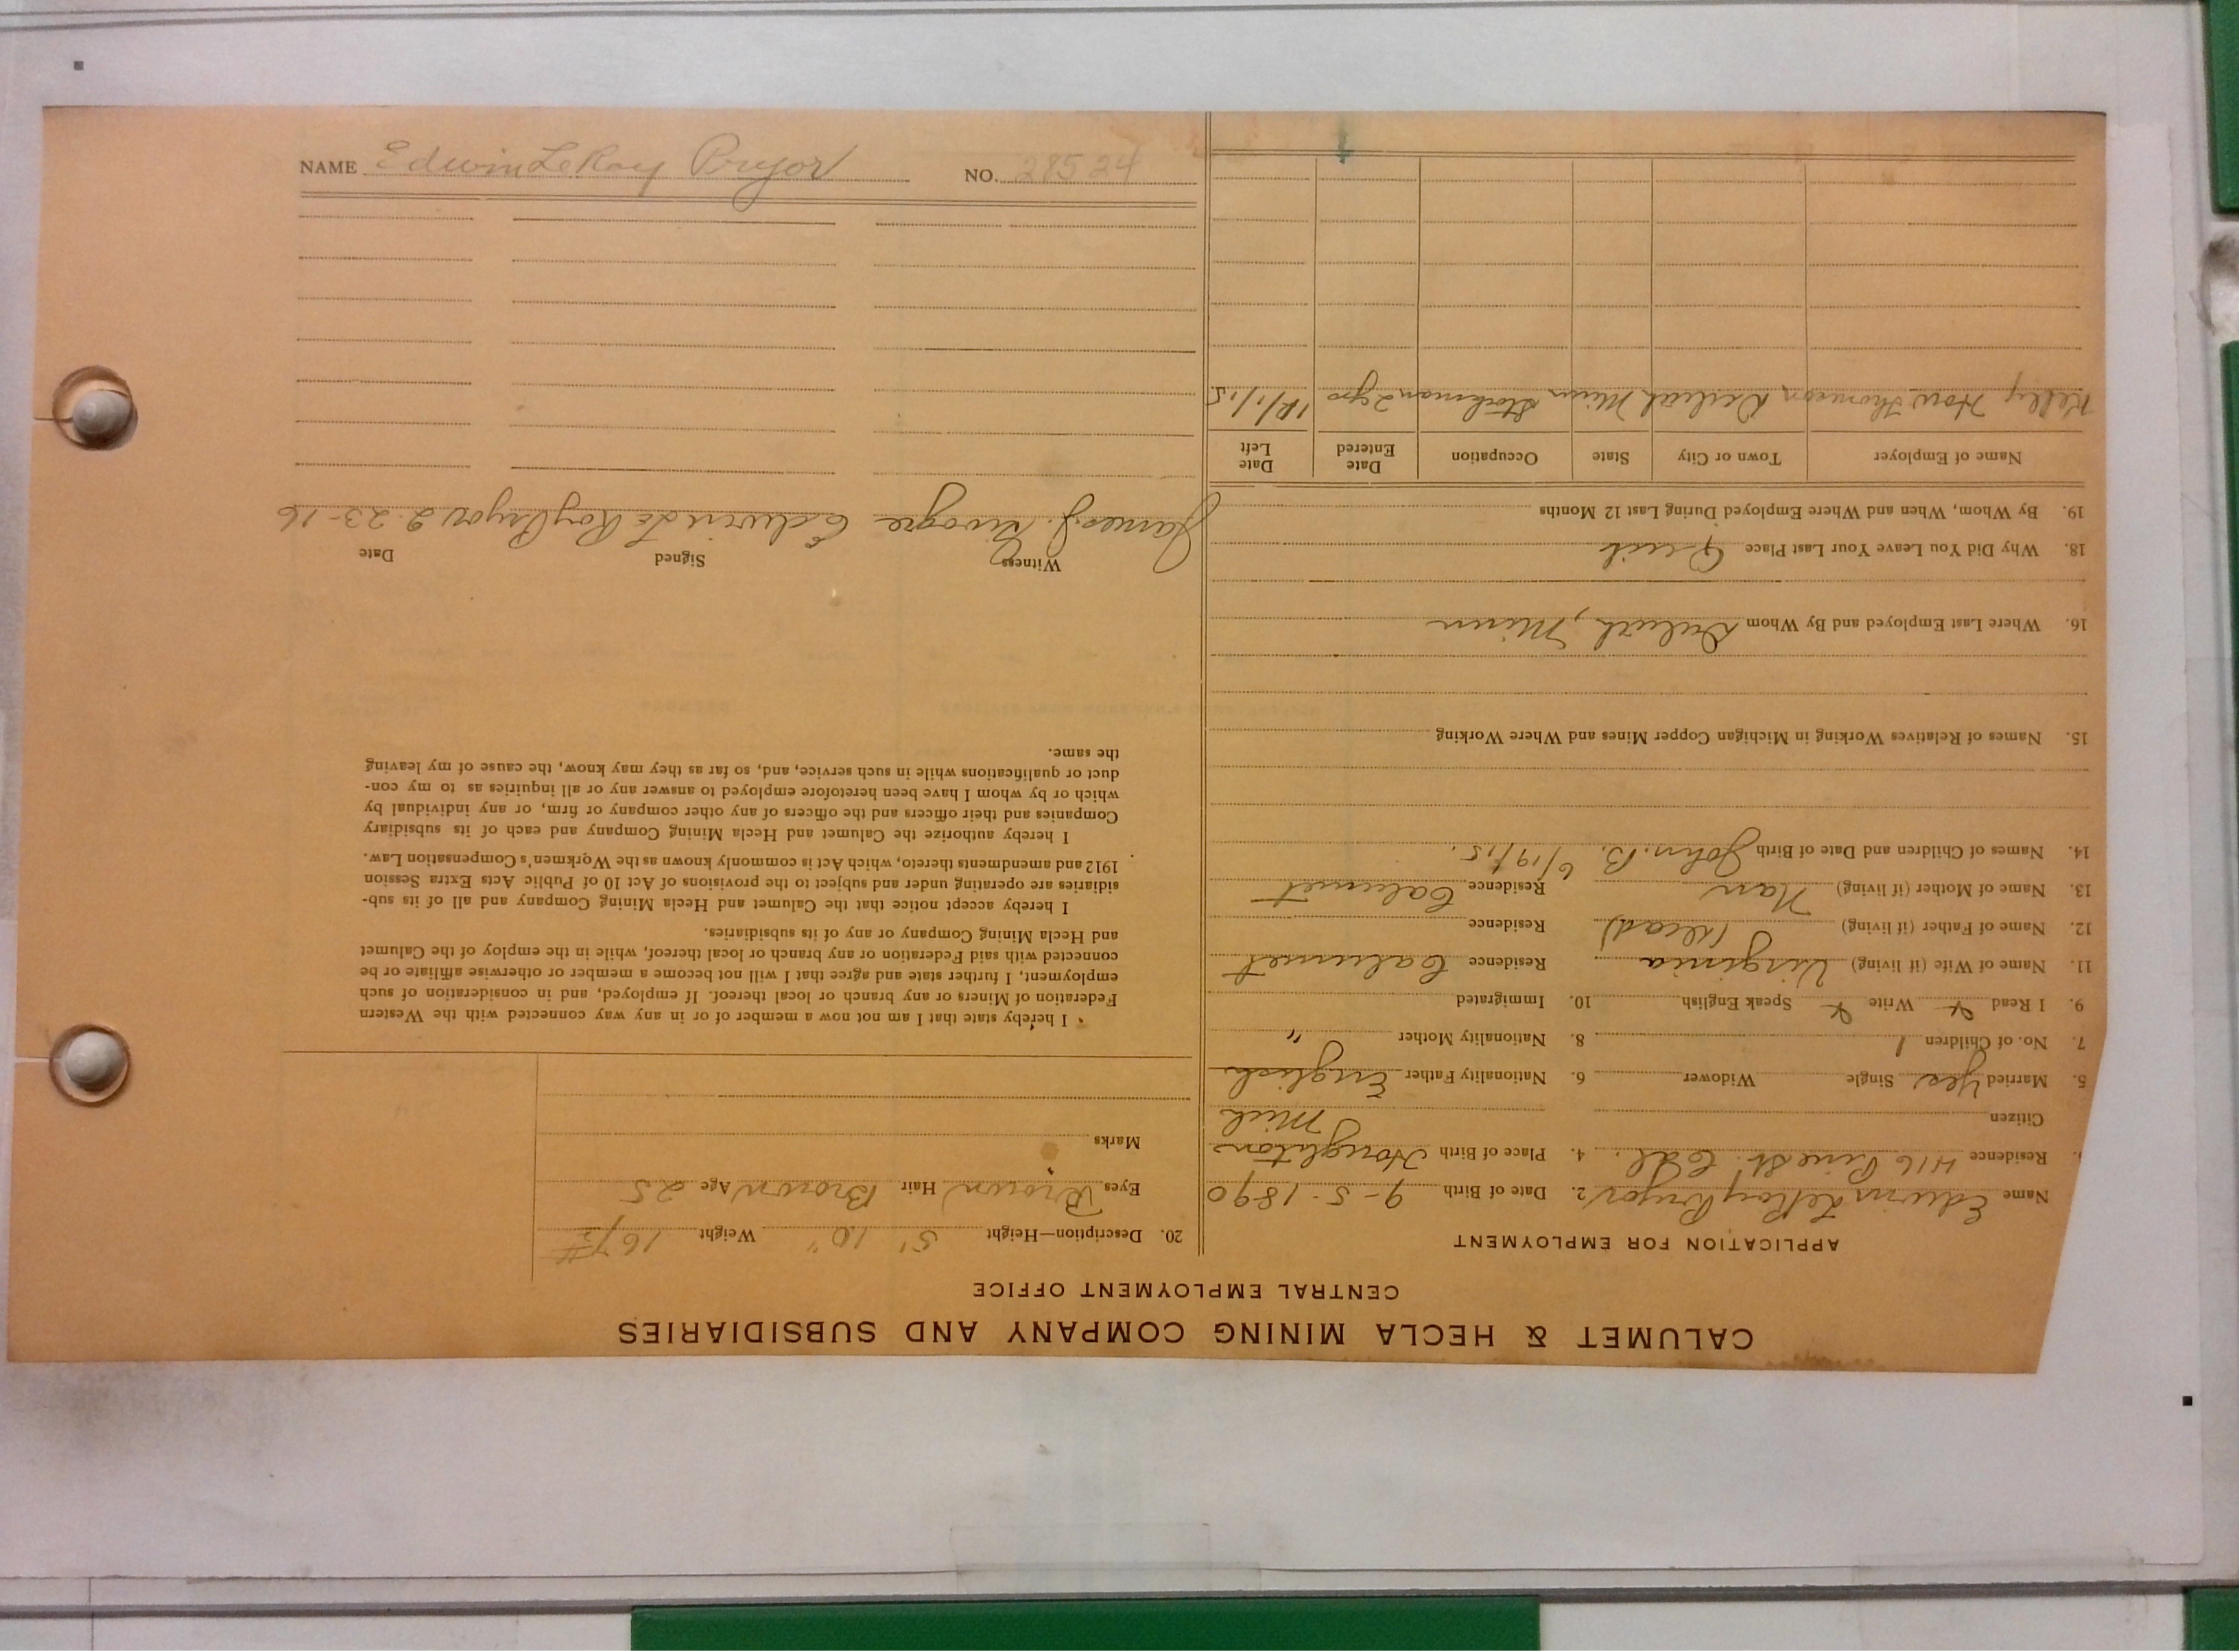 NAME Edwin LeRoy Pryor NO. 28524
CALUMET & HECLA MINING COMPANY AND SUBSIDIARIES
CENTRAL EMPLOYMENT OFFICE
APPLICATION FOR EMPLOYMENT
Name Edwin LeRoy Pryor 2. Date of Birth 9-5-1890
Residence 416 Pine St. 4. Place of Birth Houghton
Mich
Citizen
5. Married Yes Single Widower 6. Nationality Father English
7. No. of Children 1 8. Nationality Mother "
9. I Read Write Speak English 10. Immigrated
11. Name of Wife (if living) Virginia Residence Calumet
12. Name of Father (if living) (dead) Residence
13. Name of Mother (if living) Nan Residence Calumet
14. Names of Children and Date of Birth John. B. 6/19/15.
15. Names of Relatives Working in Michigan Copper Mines and Where Working
16. Where Last Employed and By Whom Duluth, Minn
18. Why Did You Leave Your Last Place Quit
19. By Whom, When and Where Employed During Last 12 Months
Name of Employer Town or City State Occupation Date Entered Date Left
Kelly How Thomson Duluth Minn Stockman 2 yrs 12/1/15
20. Description—Height 5' 10" Weight 167#
Eyes Brown Hair Brown Age 25
Marks
I hereby state that I am not now a member of or in any way connected with the Western
Federation of Miners or any branch or local thereof. If employed, and in consideration of such
employment, I further state and agree that I will not become a member or otherwise affiliate or be
connected with said Federation or any branch or local thereof, while in the employ of the Calumet
and Hecla Mining Company or any of its subsidiaries.
I hereby accept notice that the Calumet and Hecla Mining Company and all of its sub-
sidiaries are operating under and subject to the provisions of Act 10 of Public Acts Extra Session
1912 and amendments thereto, which Act is commonly known as the Workmen's Compensation Law.
I hereby authorize the Calumet and Hecla Mining Company and each of its subsidiary
Companies and their officers and the officers of any other company or firm, or any individual by
which or by whom I have been heretofore employed to answer any or all inquiries as to my con-
duct or qualifications while in such service, and, so far as they may know, the cause of my leaving
the same.
Witness Signed Date
James J. Edwin Le Roy Pryor 2-23-16